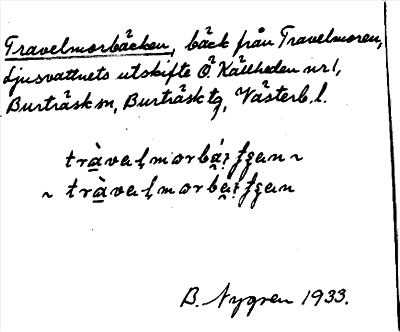 Travelmorbäcken, bäck från Travelmoren,
Ljusvattnets utskifte Ö. Källheden nr 1,
Burträsk sn, Burträsk tg, Västerb. l.
B. Nygren 1933.